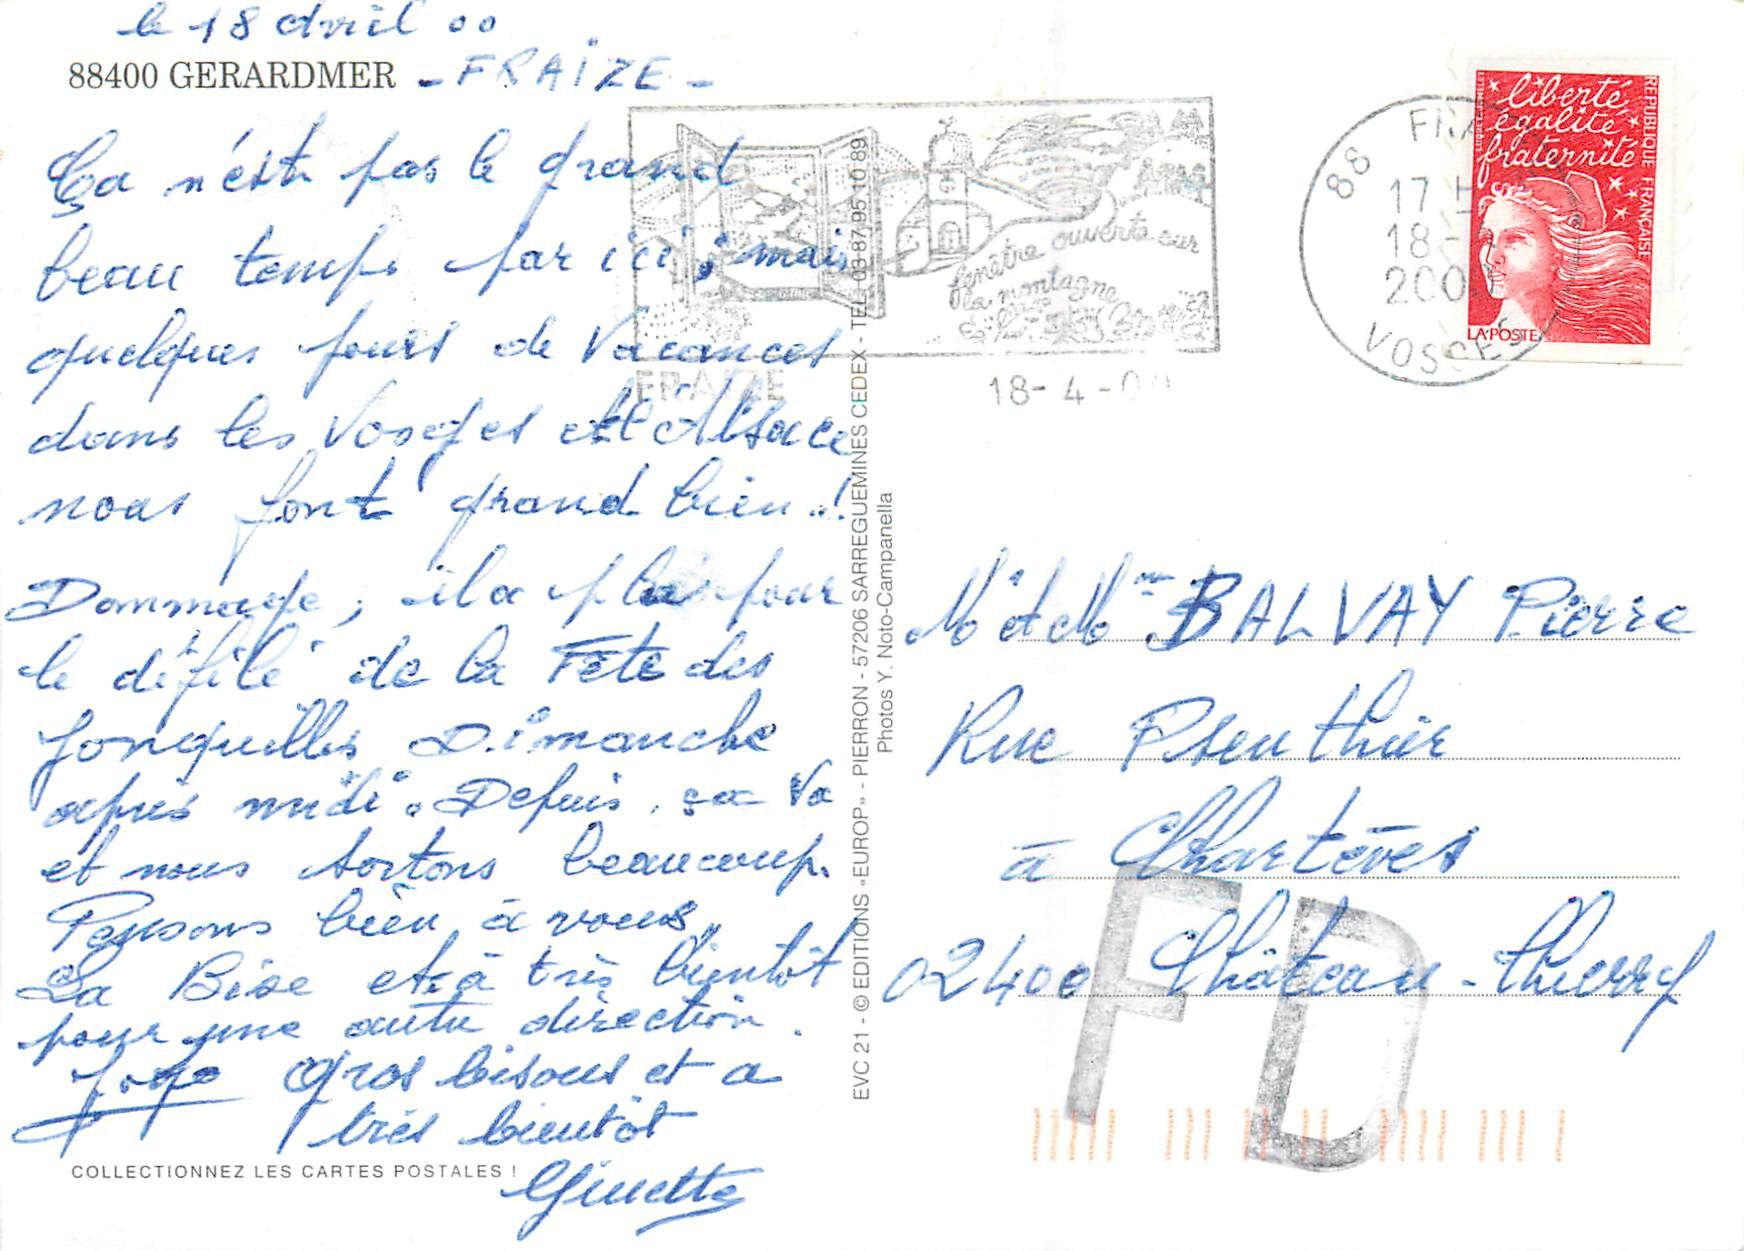 le 18 avril 00
88400 GERARDMER - FRAIZE -
Ça n'est pas le grand
beau temps par ici ; mais
quelques jours de vacances
dans les Vosges et l'Alsace
nous font grand bien !
Dommage, il a plu pour
le défilé de la Fête des
Jonquilles Dimanche
après midi. Depuis, ça va
et nous sortons beaucoup.
Pensons bien à vous.
La Bise et à très bientôt
pour une autre direction.
Gros bisous et a
très bientôt
Ginette
COLLECTIONNEZ LES CARTES POSTALES !
EVC 21 - © EDITIONS «EUROP» - PIERRON - 57206 SARREGUEMINES CEDEX - TEL. 03 87 95 10 89
Photos Y. Noto-Campanella
fenêtre ouverte sur
la montagne
FRAIZE 18-4-00
88 FRAIZE
17 H
18-
2000
VOSGES
liberté
égalité
fraternité
REPUBLIQUE FRANÇAISE
LA POSTE
Mr et Mme BALVAY Pierre
Rue
à Chartèves
02400 Château-Thierry
FD